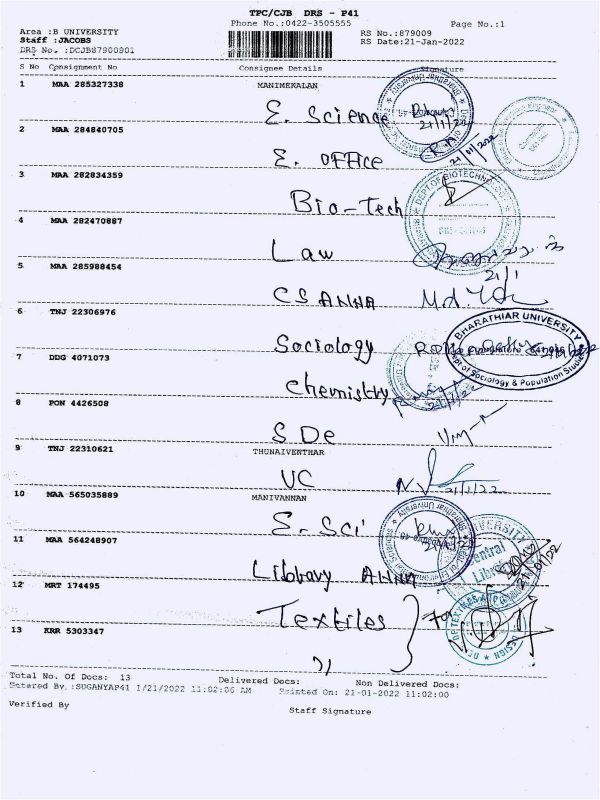 TPC/CJB DRS - P41
Phone No.:0422-3505555
Page No.:1
Area :B UNIVERSITY
Staff :JACOBS
DRS No. :DCJB87900901
RS No.:879009
RS Date:21-Jan-2022
S No Consignment No Consignee Details Signature
1 MAA 285327338 MANIMEKALAN
E. Science
21/1/22
2 MAA 284840705
E. OFFICE
21/01/2022
3 MAA 282834359
Bio-Tech
DEPT.OF BIOTECHNOLOGY
4 MAA 282470887
Law
21/1
5 MAA 285988454
CS ANNA
6 TNJ 22306976
Sociology
BHARATHIAR UNIVERSITY
Dept of Sociology & Population Studies
7 DDG 4071073
Chemistry
21/1/22
8 PON 4426508
S De
9 TNJ 22310621 THUNAIVENTHAR
VC
21/1/22
10 MAA 565035889 MANIVANNAN
E. Sci
11 MAA 564248907
Library ANNA
UNIVERSITY
Central Library
21/01/22
12 MRT 174495
Textiles
13 KRR 5303347
Total No. Of Docs: 13 Delivered Docs: Non Delivered Docs:
Entered By.:SUGANYAP41 1/21/2022 11:02:06 AM Printed On: 21-01-2022 11:02:00
Verified By
Staff Signature